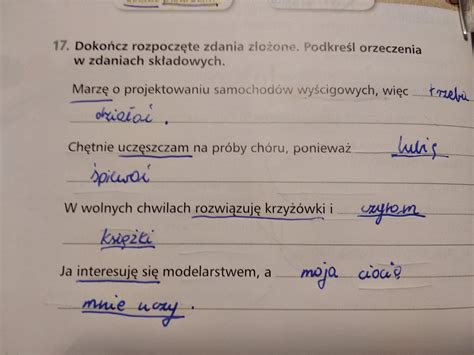 17. Dokończ rozpoczęte zdania złożone. Podkreśl orzeczenia
w zdaniach składowych.
Marzę o projektowaniu samochodów wyścigowych, więc trzeba
działać.
Chętnie uczęszczam na próby chóru, ponieważ lubię
śpiewać
W wolnych chwilach rozwiązuję krzyżówki i czytam
książki
Ja interesuję się modelarstwem, a moja ciocia
mnie uczy.